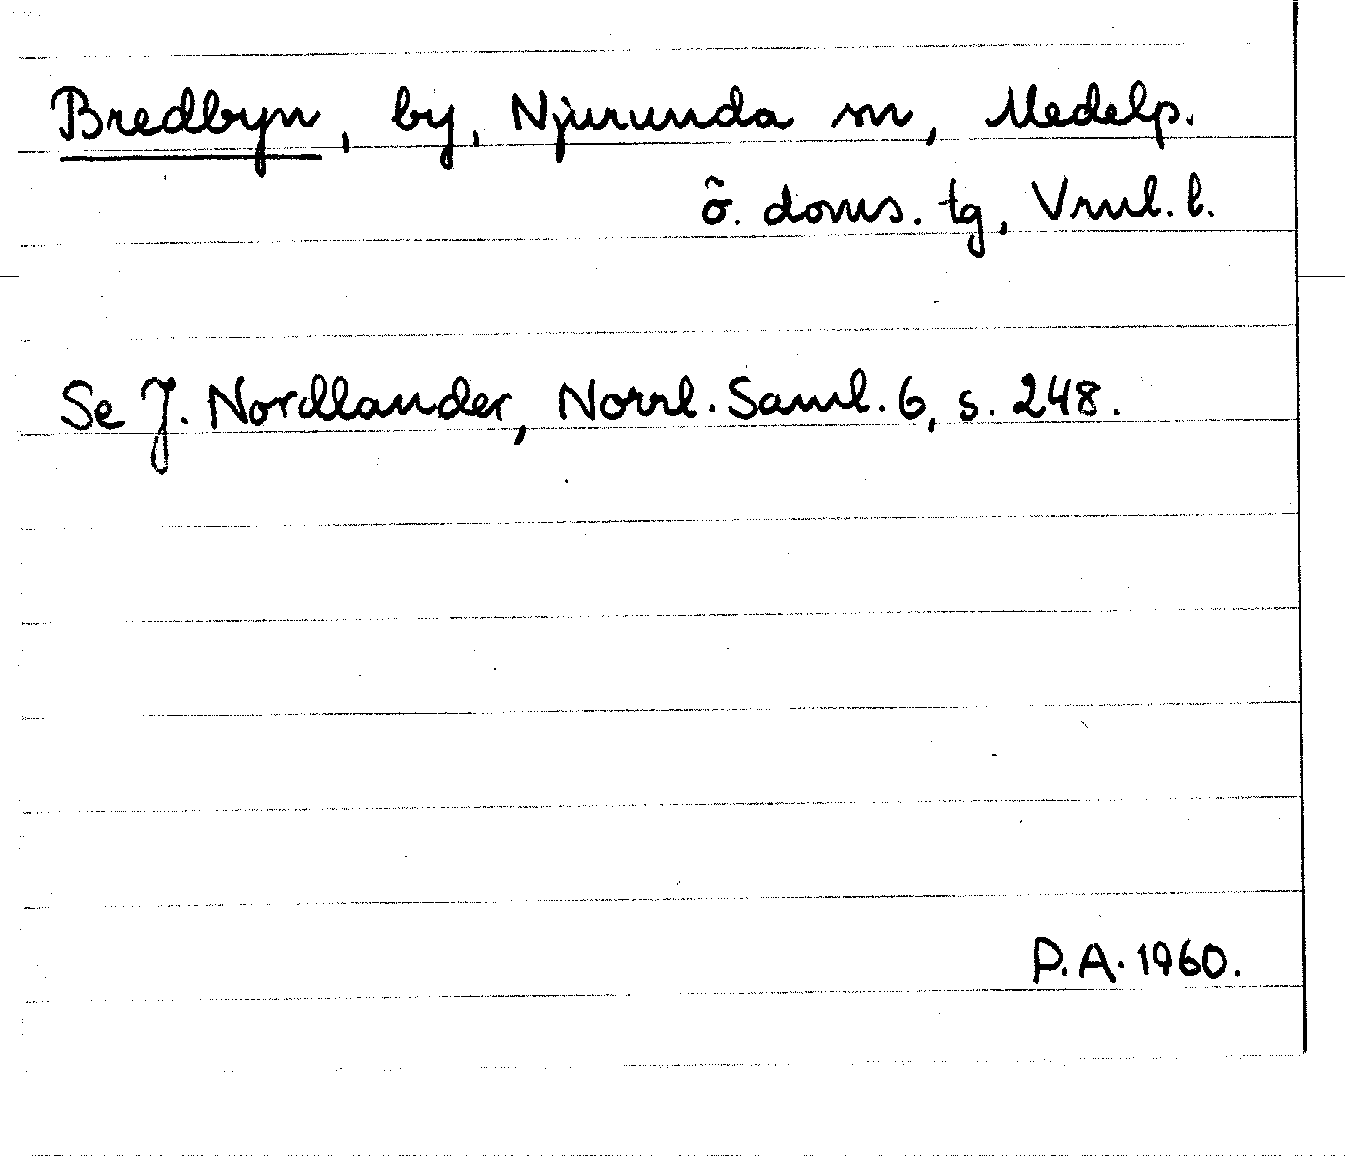 Bredbyn, by, Njurunda sn, Medelp.
ö. doms. tg, Vrnl. l.
Se J. Nordlander, Norrl. Saml. 6, s. 248.
P.A. 1960.